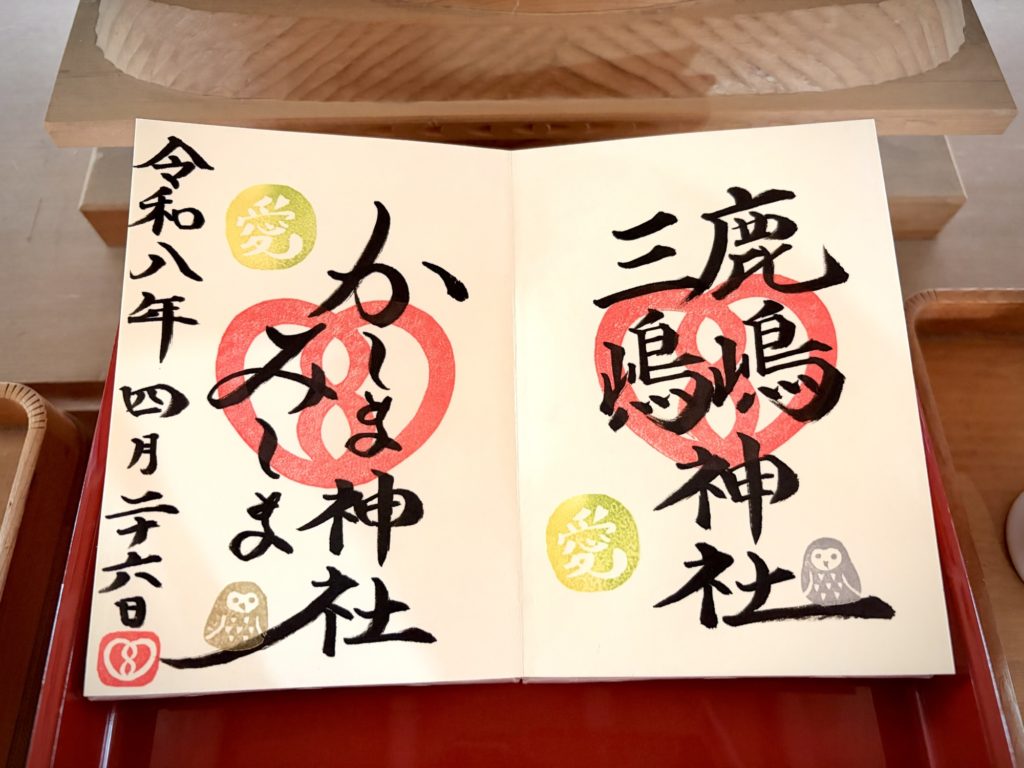 鹿嶋神社
三嶋
愛
かしま神社
みしま
愛
令和八年 四月二十六日